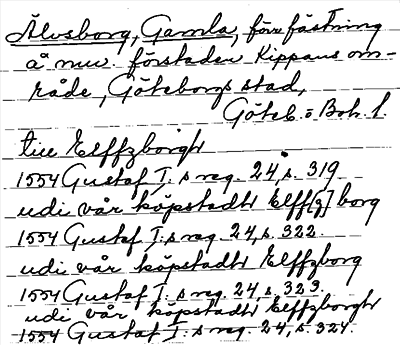 Älvsborg, Gamla, förr fästning
å nuv. förstaden Kippans om-
råde, Göteborgs stad,
Göteb. o Boh. l.
till Elffzborgh
1554 Gustaf I:s reg. 24, s. 319
udi vår köpstadt Elff[z]borg
1554 Gustaf I:s reg. 24, s. 322.
udi vår köpstadt Elffzborg
1554 Gustaf I:s reg. 24, s. 323.
udi vår köpstadt Elffzborgh
1554 Gustaf I:s reg. 24, s. 324.